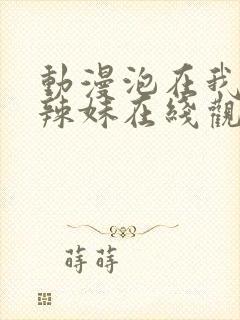 動漫泡在我
辣妹在綫觀
蒔蒔